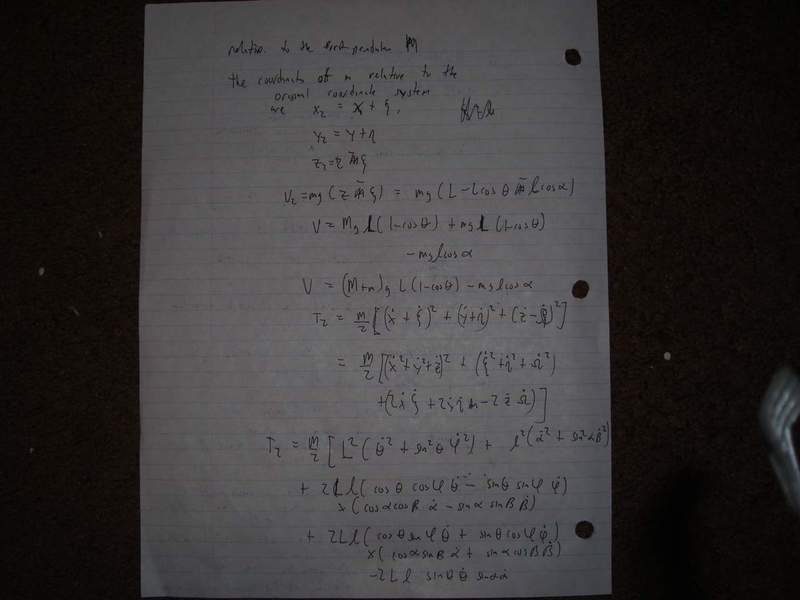 relative to the first pendulum M
the coordinates of m relative to the
original coordinate system
are x₂ = x + ξ,
y₂ = y + η
z₂ = z
= mg(z ) = mg(L - L cos θ l cos α)
V = Mg L(1-cos θ) + mg L (1-cos θ)
- mg l cos α
V = (M+m)g L(1-cos θ) - mg l cos α
T₂ = m/2 [(ẋ + ξ̇)² + (ẏ+η̇)² + (ż - )²]
= m/2 [(ẋ²+ẏ²+ż)² + (ξ̇²+η̇²+ ²)
+(2ẋ ξ̇ + 2 η̇ - 2 ż )]
T₂ = m/2 [L²(θ̇² + sin²θ φ̇²) + l²(α̇² + sin²α β̇²)
+ 2Ll(cos θ cos φ θ̇ - sin θ sin φ φ̇)
x (cos α cos β α̇ - sin α sin β β̇)
+ 2Ll(cos θ sin φ θ̇ + sin θ cos φ φ̇)
x(cos α sin β α̇ + sin α cos β β̇)
-2Ll sin θ θ̇ sin α α̇